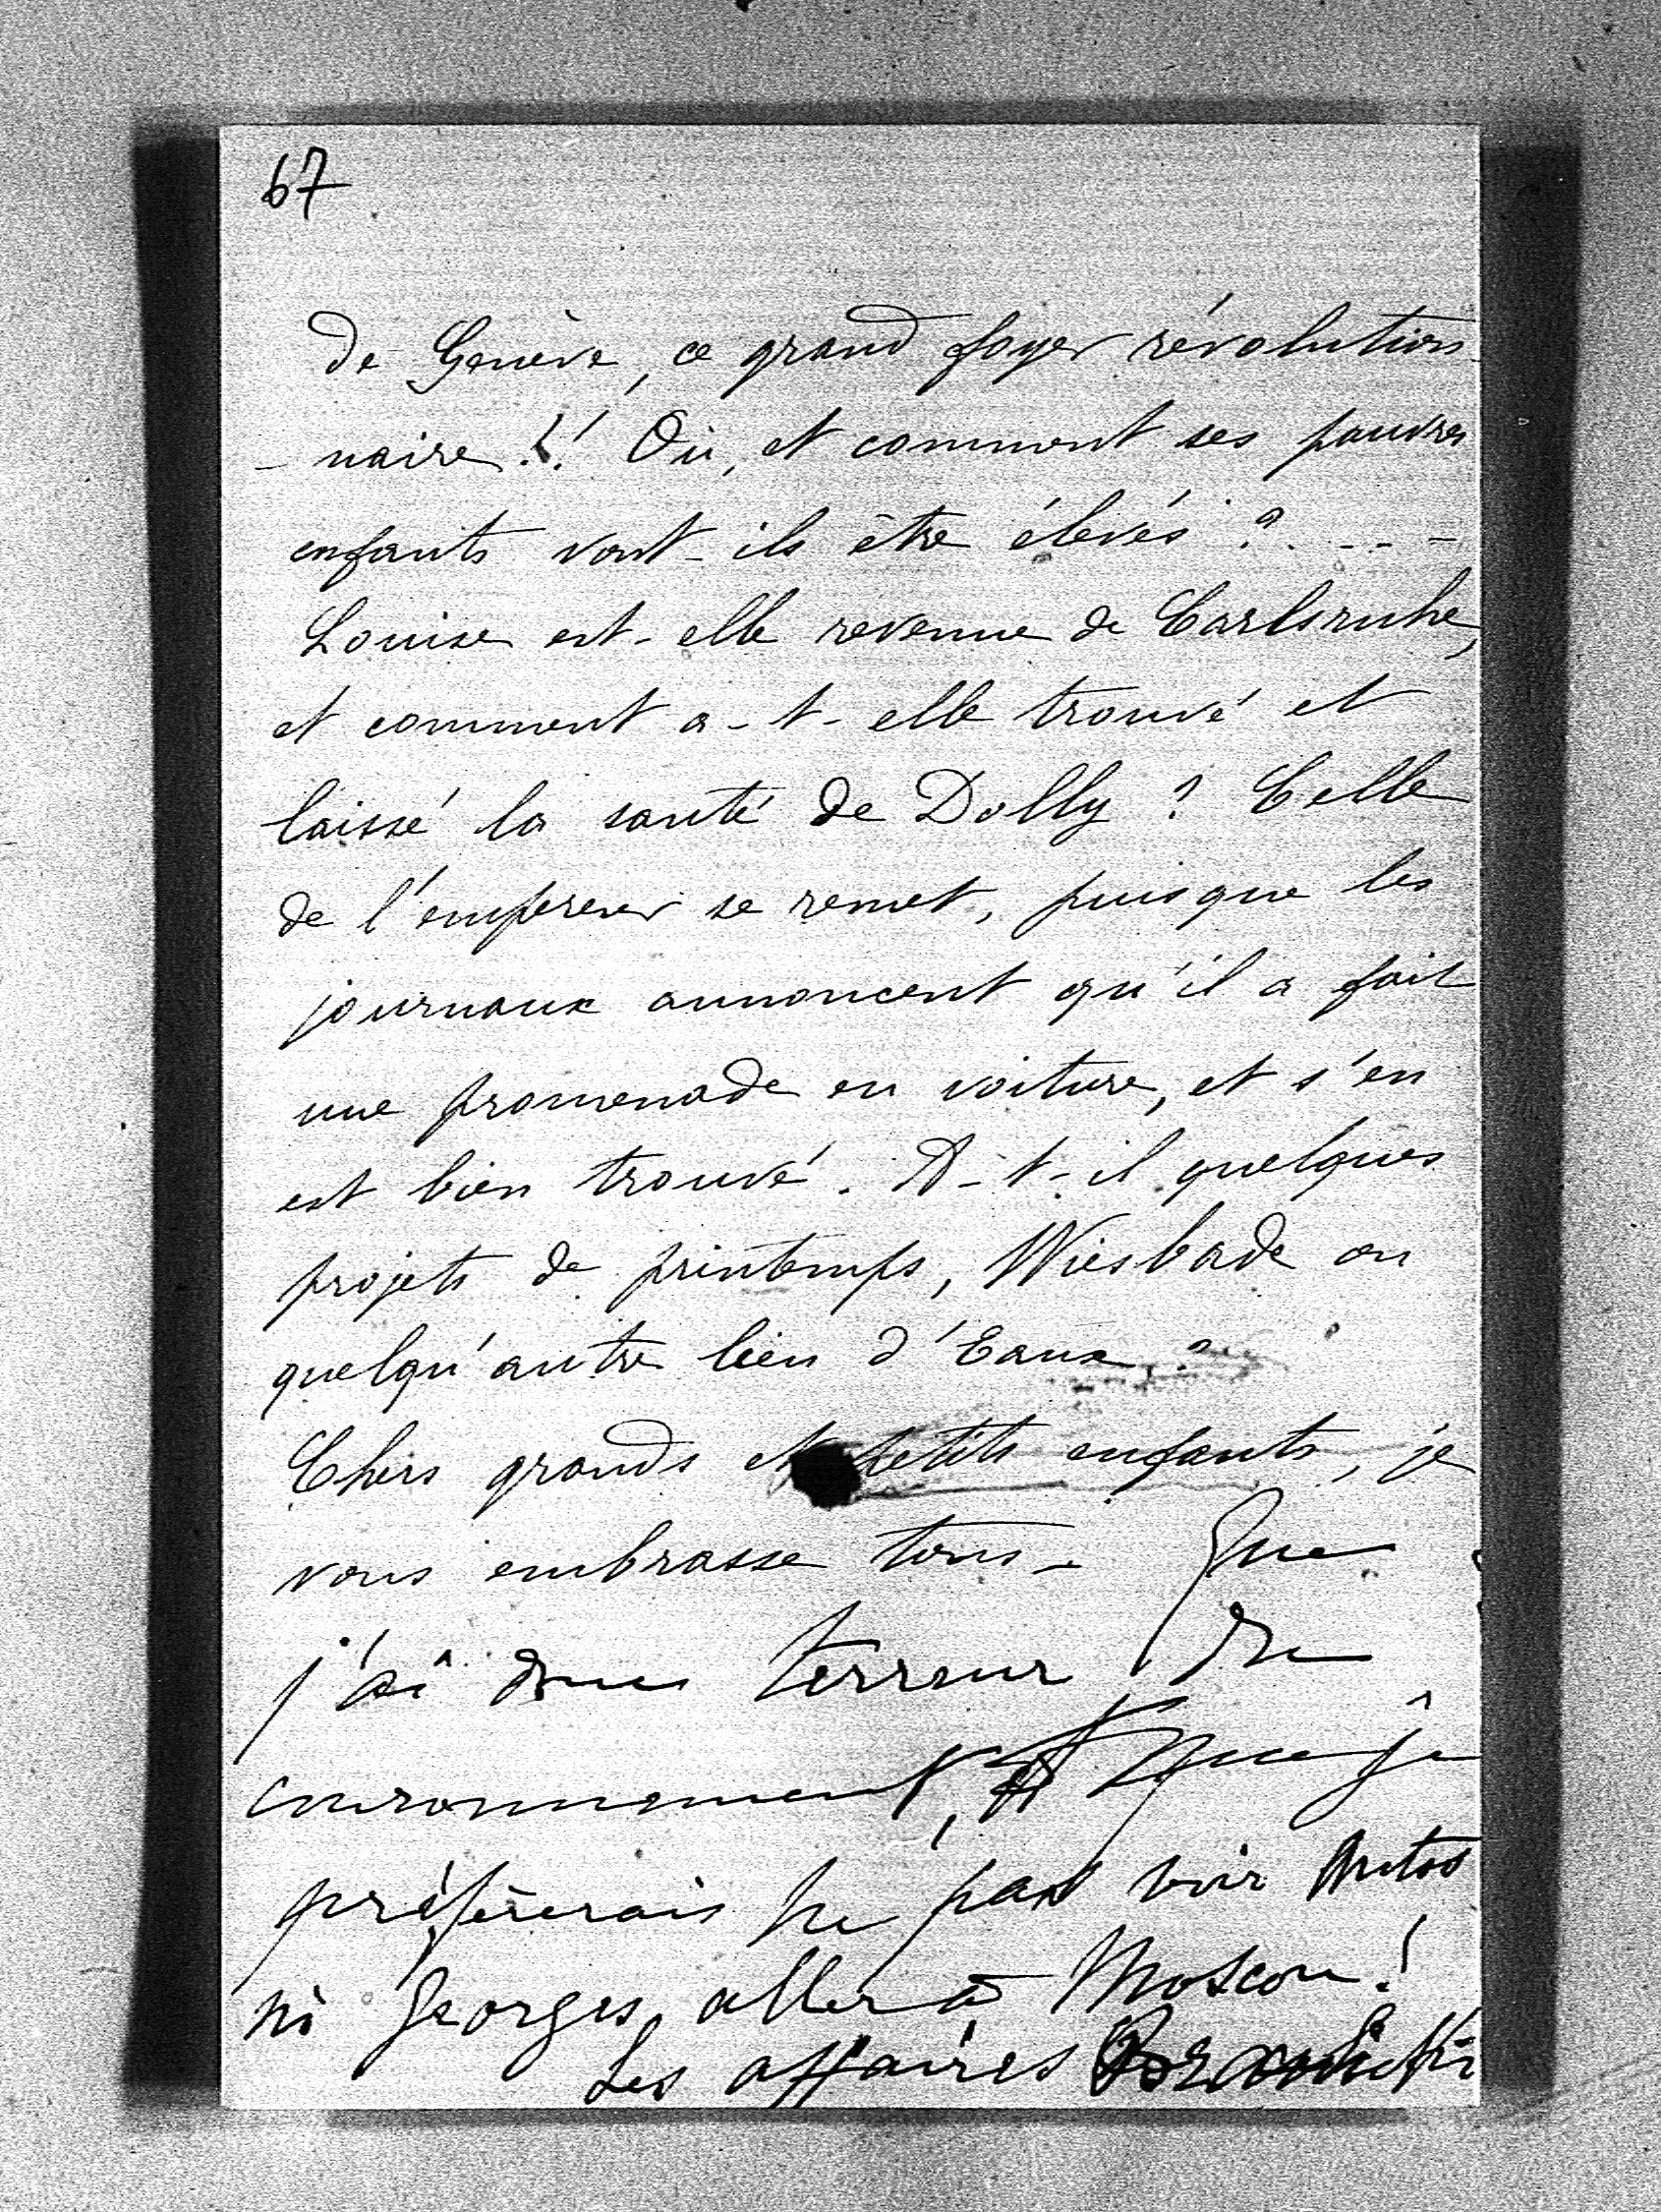 67
de Genève, ce grand foyer révolution
- naire !.! Où, et comment ses pauvres
enfants vont-ils être élevés ? . - - -
Louise est-elle revenue de Carlsruhe,
et comment a-t-elle trouvé et
laissé la santé de Dolly ? Celle
de l'empereur se remet, puisque les
journaux annoncent qu'il a fait
une promenade en voiture, et s'en
est bien trouvé. A-t-il quelques
projets de printemps, Wiesbade ou
quelqu'autre lieu d'Eaux ?
Chers grands et petits enfants, je
vous embrasse tous - Que
j'ai donc terreur du
couronnement, et que je
préférerais ne pas voir
ni Georges, aller à Moscou !
Les affaires